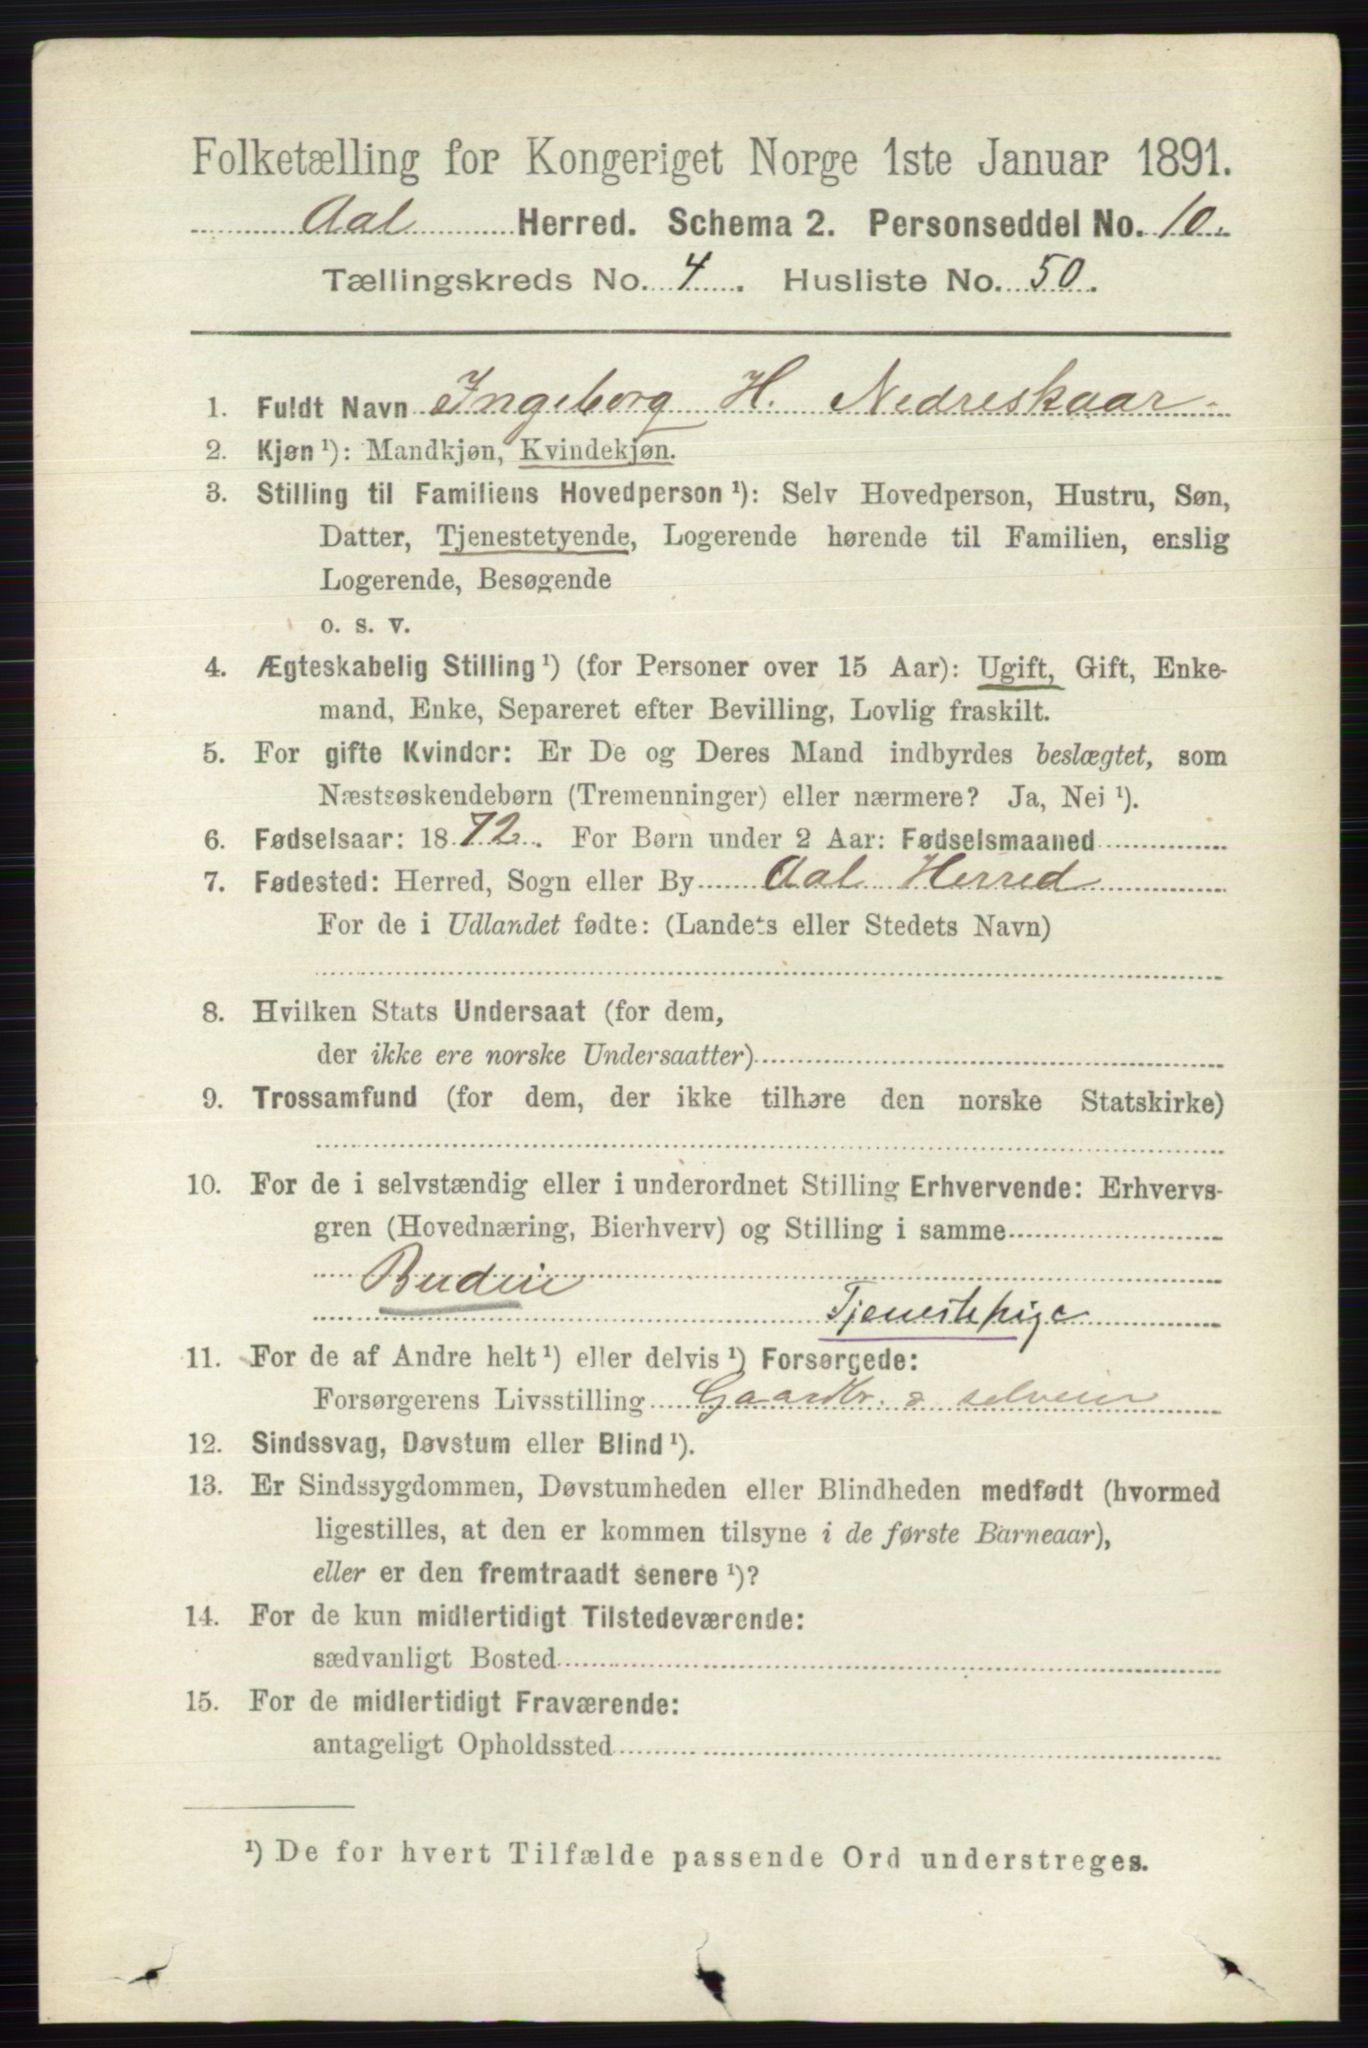 Folketælling for Kongeriget Norge 1ste Januar 1891.
Aal Herred. Schema 2. Personseddel No. 10.
Tællingskreds No. 4. Husliste No. 50.
1. Fuldt Navn Ingeborg H. Nedreskaar
2. Kjøn ¹): Mandkjøn, Kvindekjøn.
3. Stilling til Familiens Hovedperson ¹): Selv Hovedperson, Hustru, Søn,
Datter, Tjenestetyende, Logerende hørende til Familien, enslig
Logerende, Besøgende
o. s. v.
4. Ægteskabelig Stilling ¹) (for Personer over 15 Aar): Ugift, Gift, Enke-
mand, Enke, Separeret efter Bevilling, Lovlig fraskilt.
5. For gifte Kvinder: Er De og Deres Mand indbyrdes beslægtet, som
Næstsøskendebørn (Tremenninger) eller nærmere? Ja, Nei ¹).
6. Fødselsaar: 1872. For Børn under 2 Aar: Fødselsmaaned
7. Fødested: Herred, Sogn eller By Aal Herred
For de i Udlandet fødte: (Landets eller Stedets Navn)
8. Hvilken Stats Undersaat (for dem,
der ikke ere norske Undersaatter)
9. Trossamfund (for dem, der ikke tilhøre den norske Statskirke)
10. For de i selvstændig eller i underordnet Stilling Erhvervende: Erhvervs-
gren (Hovednæring, Bierhverv) og Stilling i samme
Budeie
Tjenestepige
11. For de af Andre helt ¹) eller delvis ¹) Forsørgede:
Forsørgerens Livsstilling Gaardbr. & selveier
12. Sindssvag, Døvstum eller Blind ¹).
13. Er Sindssygdommen, Døvstumheden eller Blindheden medfødt (hvormed
ligestilles, at den er kommen tilsyne i de første Barneaar),
eller er den fremtraadt senere ¹)?
14. For de kun midlertidigt Tilstedeværende:
sædvanligt Bosted
15. For de midlertidigt Fraværende:
antageligt Opholdssted
¹) De for hvert Tilfælde passende Ord understreges.